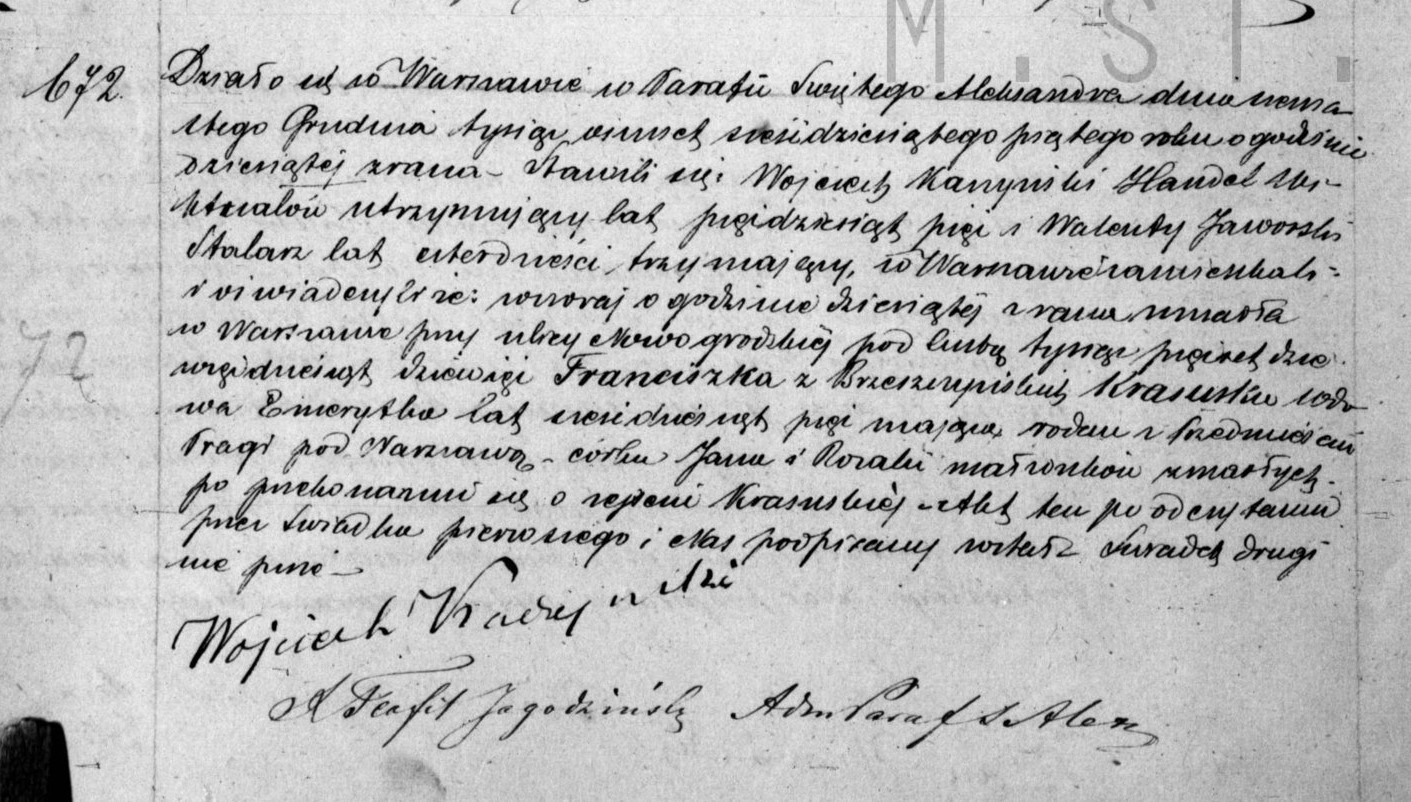 M.ST.
672. Działo się w Warszawie w Parafii Świętego Aleksandra dnia szesna
stego Grudnia tysiąc ośmset sześćdziesiątego piątego roku o godzinie
dziesiątej zrana – Stawili się: Wojciech Handel
utrzymujący lat pięćdziesiąt pięć i Walenty Jaworski
Stolarz lat czterdzieści trzy mający, w Warszawie zamieszkali
i oświadczyli że: wczoraj o godzinie dziesiątej z rana umarła
w Warszawie przy ulicy Nowogrodzkiej pod liczbą tysiąc pięćset dzie
więćdziesiąt dziewięć Franciszka z Krasuska wdo
wa Emerytka lat sześćdziesiąt pięć mająca rodem z Przedmieścia
Pragi pod Warszawą – córka Jana i Rozalii małżonków zmarłych –
po przekonaniu się o zejściu Krasuskiej – Akt ten po odczytaniu
przez Świadka pierwszego i Nas podpisany został Świadek drugi
nie pisze –
Wojciech
X Teofil Jagodziński Adm Paraf S Alex
72